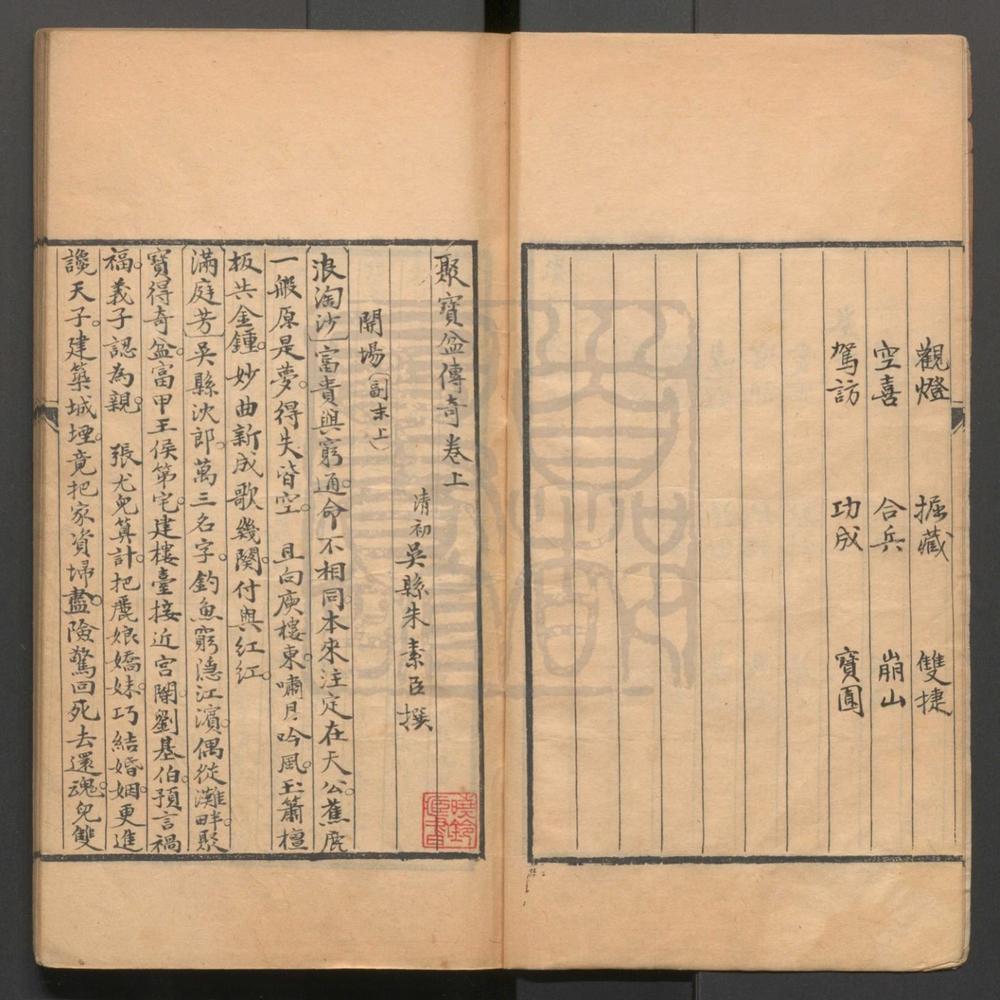 觀燈 掘藏 雙捷
空喜 合兵 崩山
駕訪 功成 寶圓
聚寶盆傳奇卷上
清初吳縣朱素臣撰
開場(副末上)
〔浪淘沙〕富貴與窮通。命不相同。本來注定在天公。蕉鹿
一般原是夢。得失皆空。 且向庾樓東。嘯月吟風。玉簫檀
板共金鍾。妙曲新成歌幾闋。付與紅紅。
〔滿庭芳〕吳縣沈郎。萬三名字。釣魚窮隱江濱。偶從灘畔。聚
寶得奇盆。富甲王侯第宅。建樓臺接近宮闕。劉基伯。預言禍
福。義子認為親。 張尤兒算計。把麗娘嬌妹。巧結婚姻。更進
讒天子。建築城堙。竟把家資埽盡。險驚回死去還魂。兒雙
曉鈴藏書